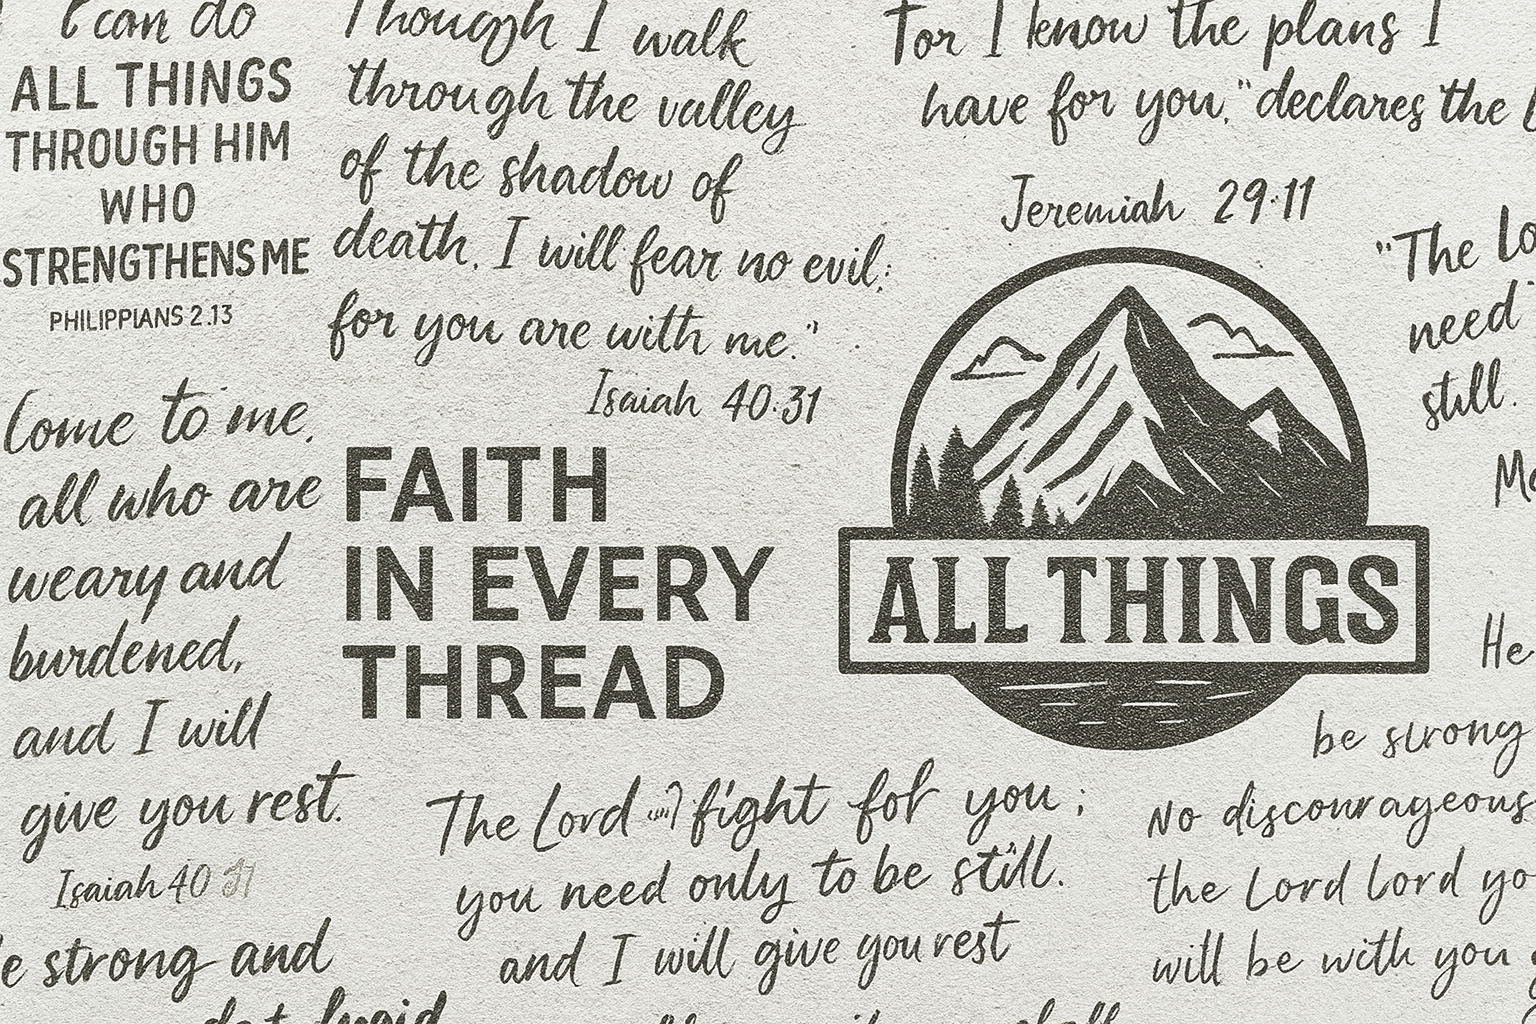 I can do
ALL THINGS
THROUGH HIM
WHO
STRENGTHENS ME
PHILIPPIANS 2.13
Though I walk
through the valley
of the shadow of
death. I will fear no evil:
for you are with me."
Isaiah 40:31
For I know the plans I
have for you," declares the
Jeremiah 29:11
"The
need
still.
Come to me,
all who are
weary and
burdened,
and I will
give you rest.
Isaiah 40
FAITH
IN EVERY
THREAD
ALL THINGS
He
be strong
The Lord fight for you;
you need only to be still.
and I will give you rest
No discourageous
the Lord Lord
will be with you
strong and